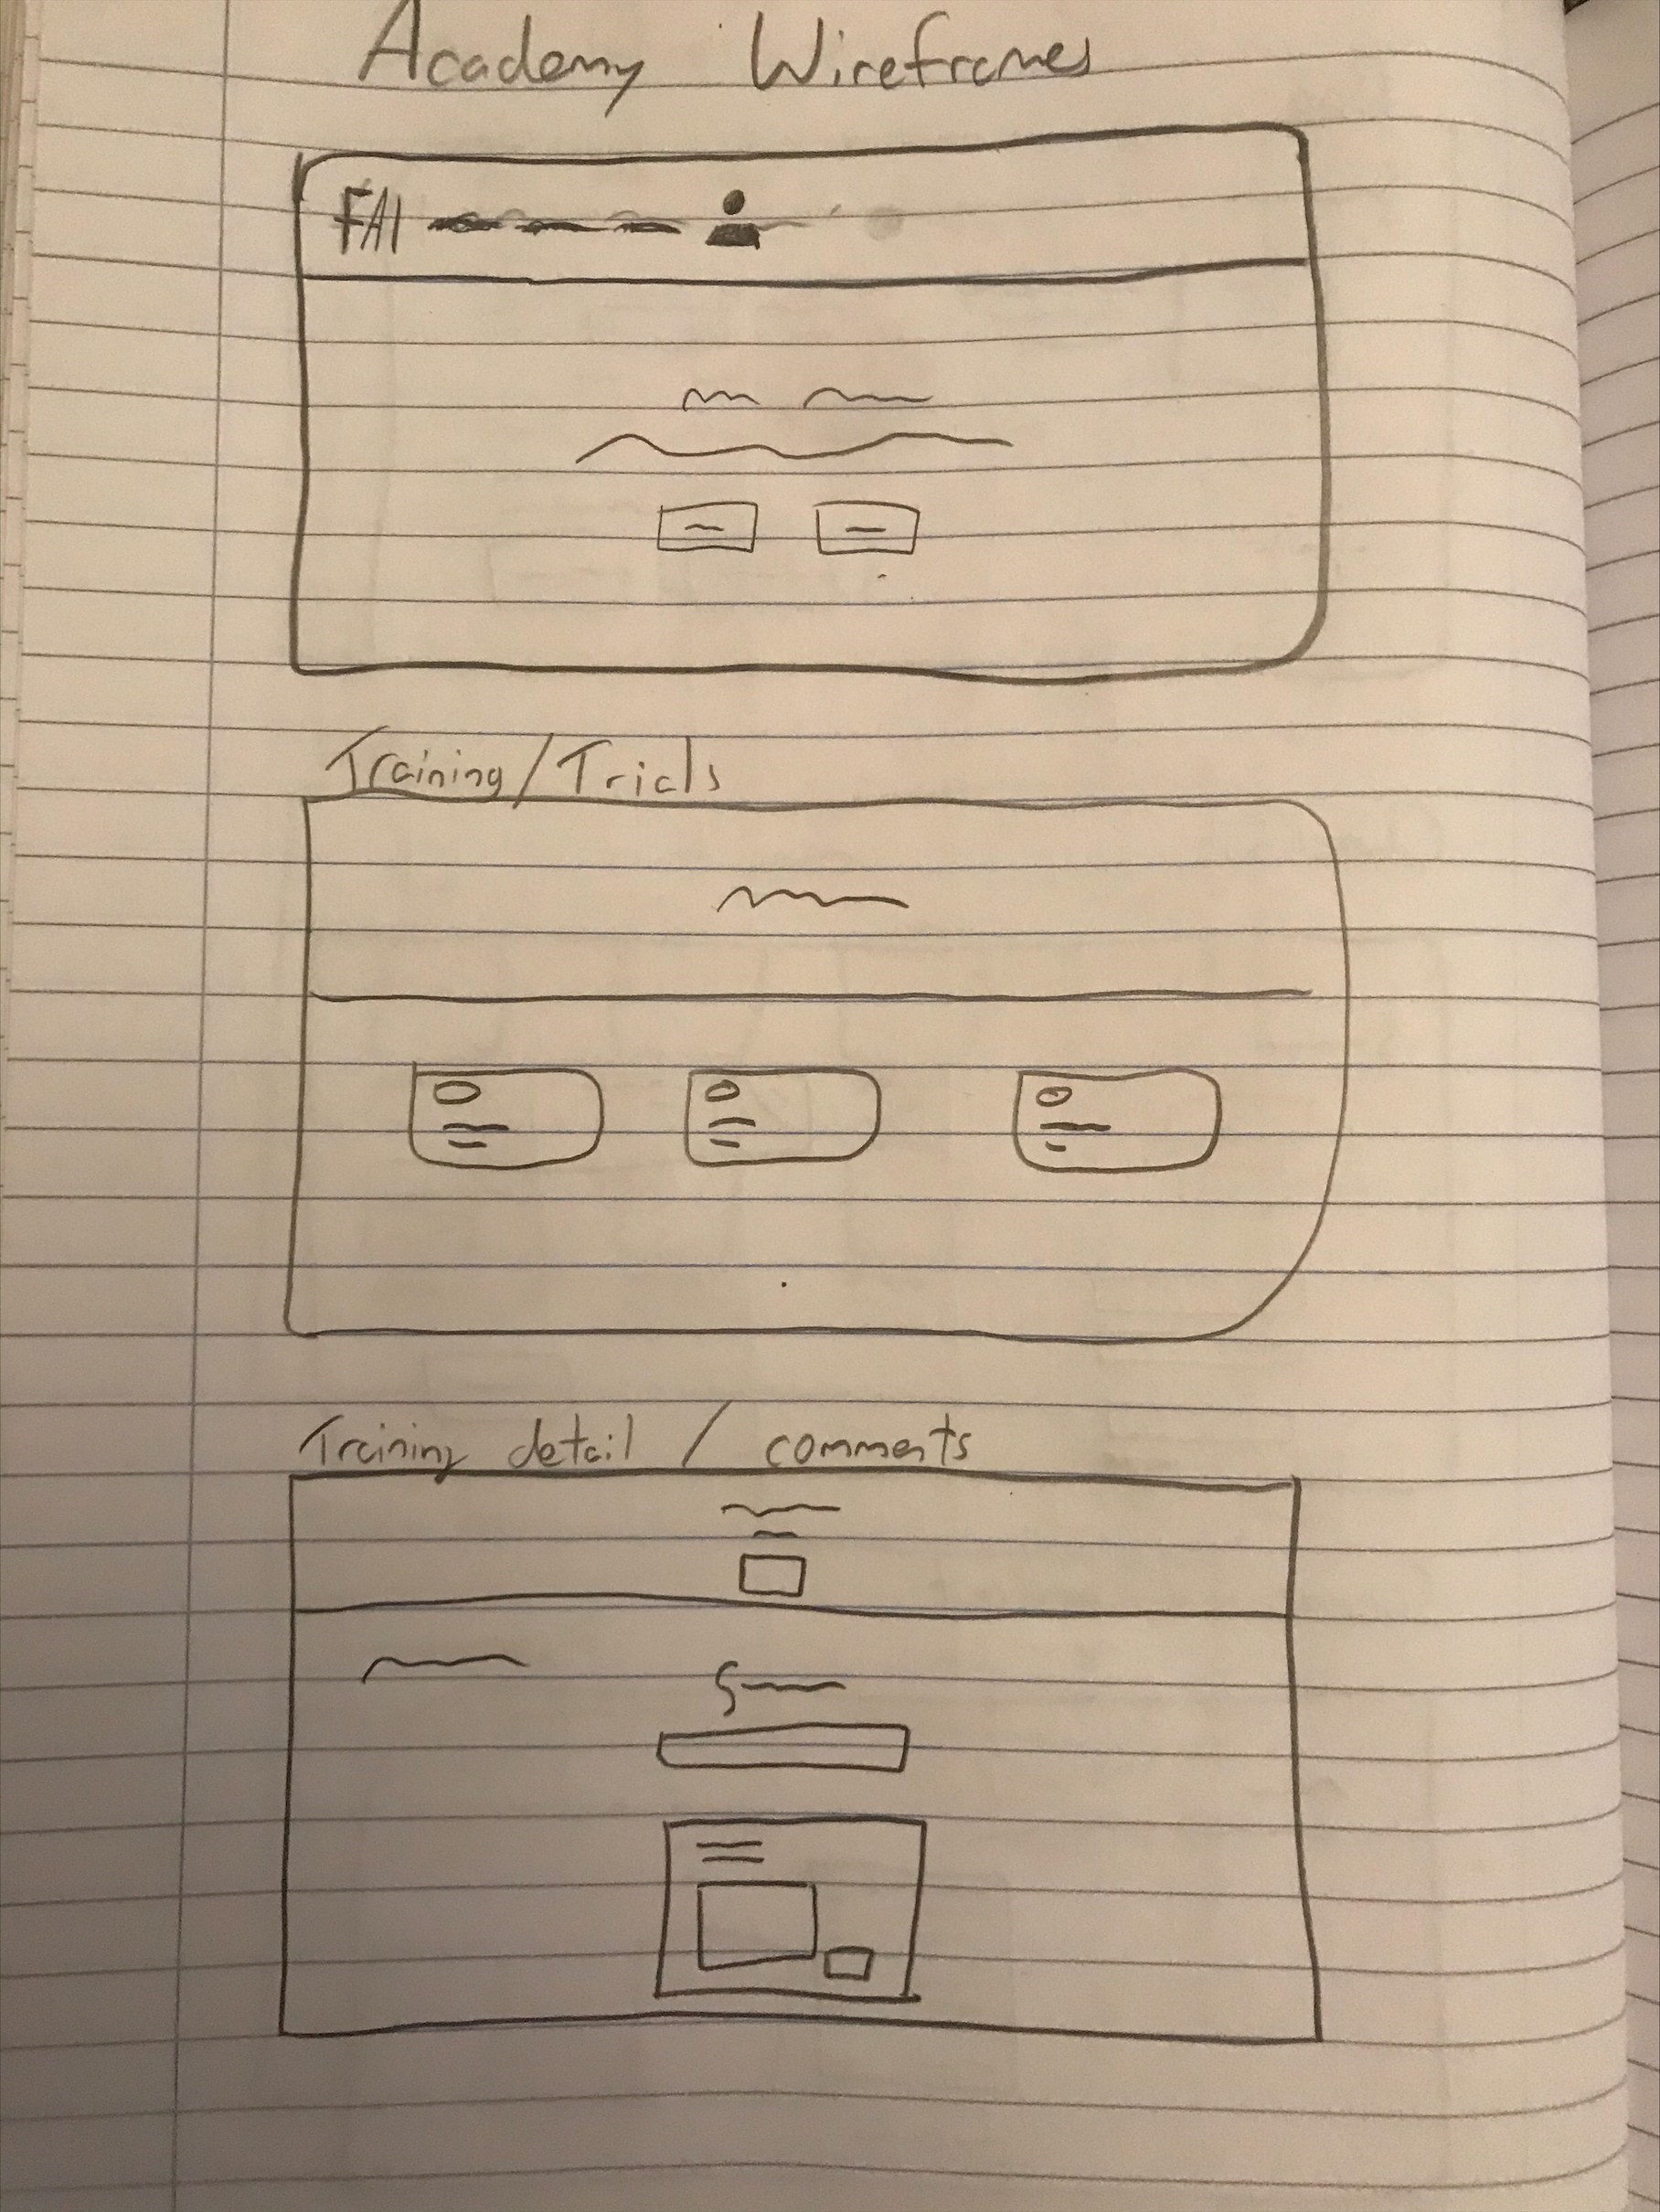 Academy Wireframes
FAI
Training/Trials
Training detail / comments